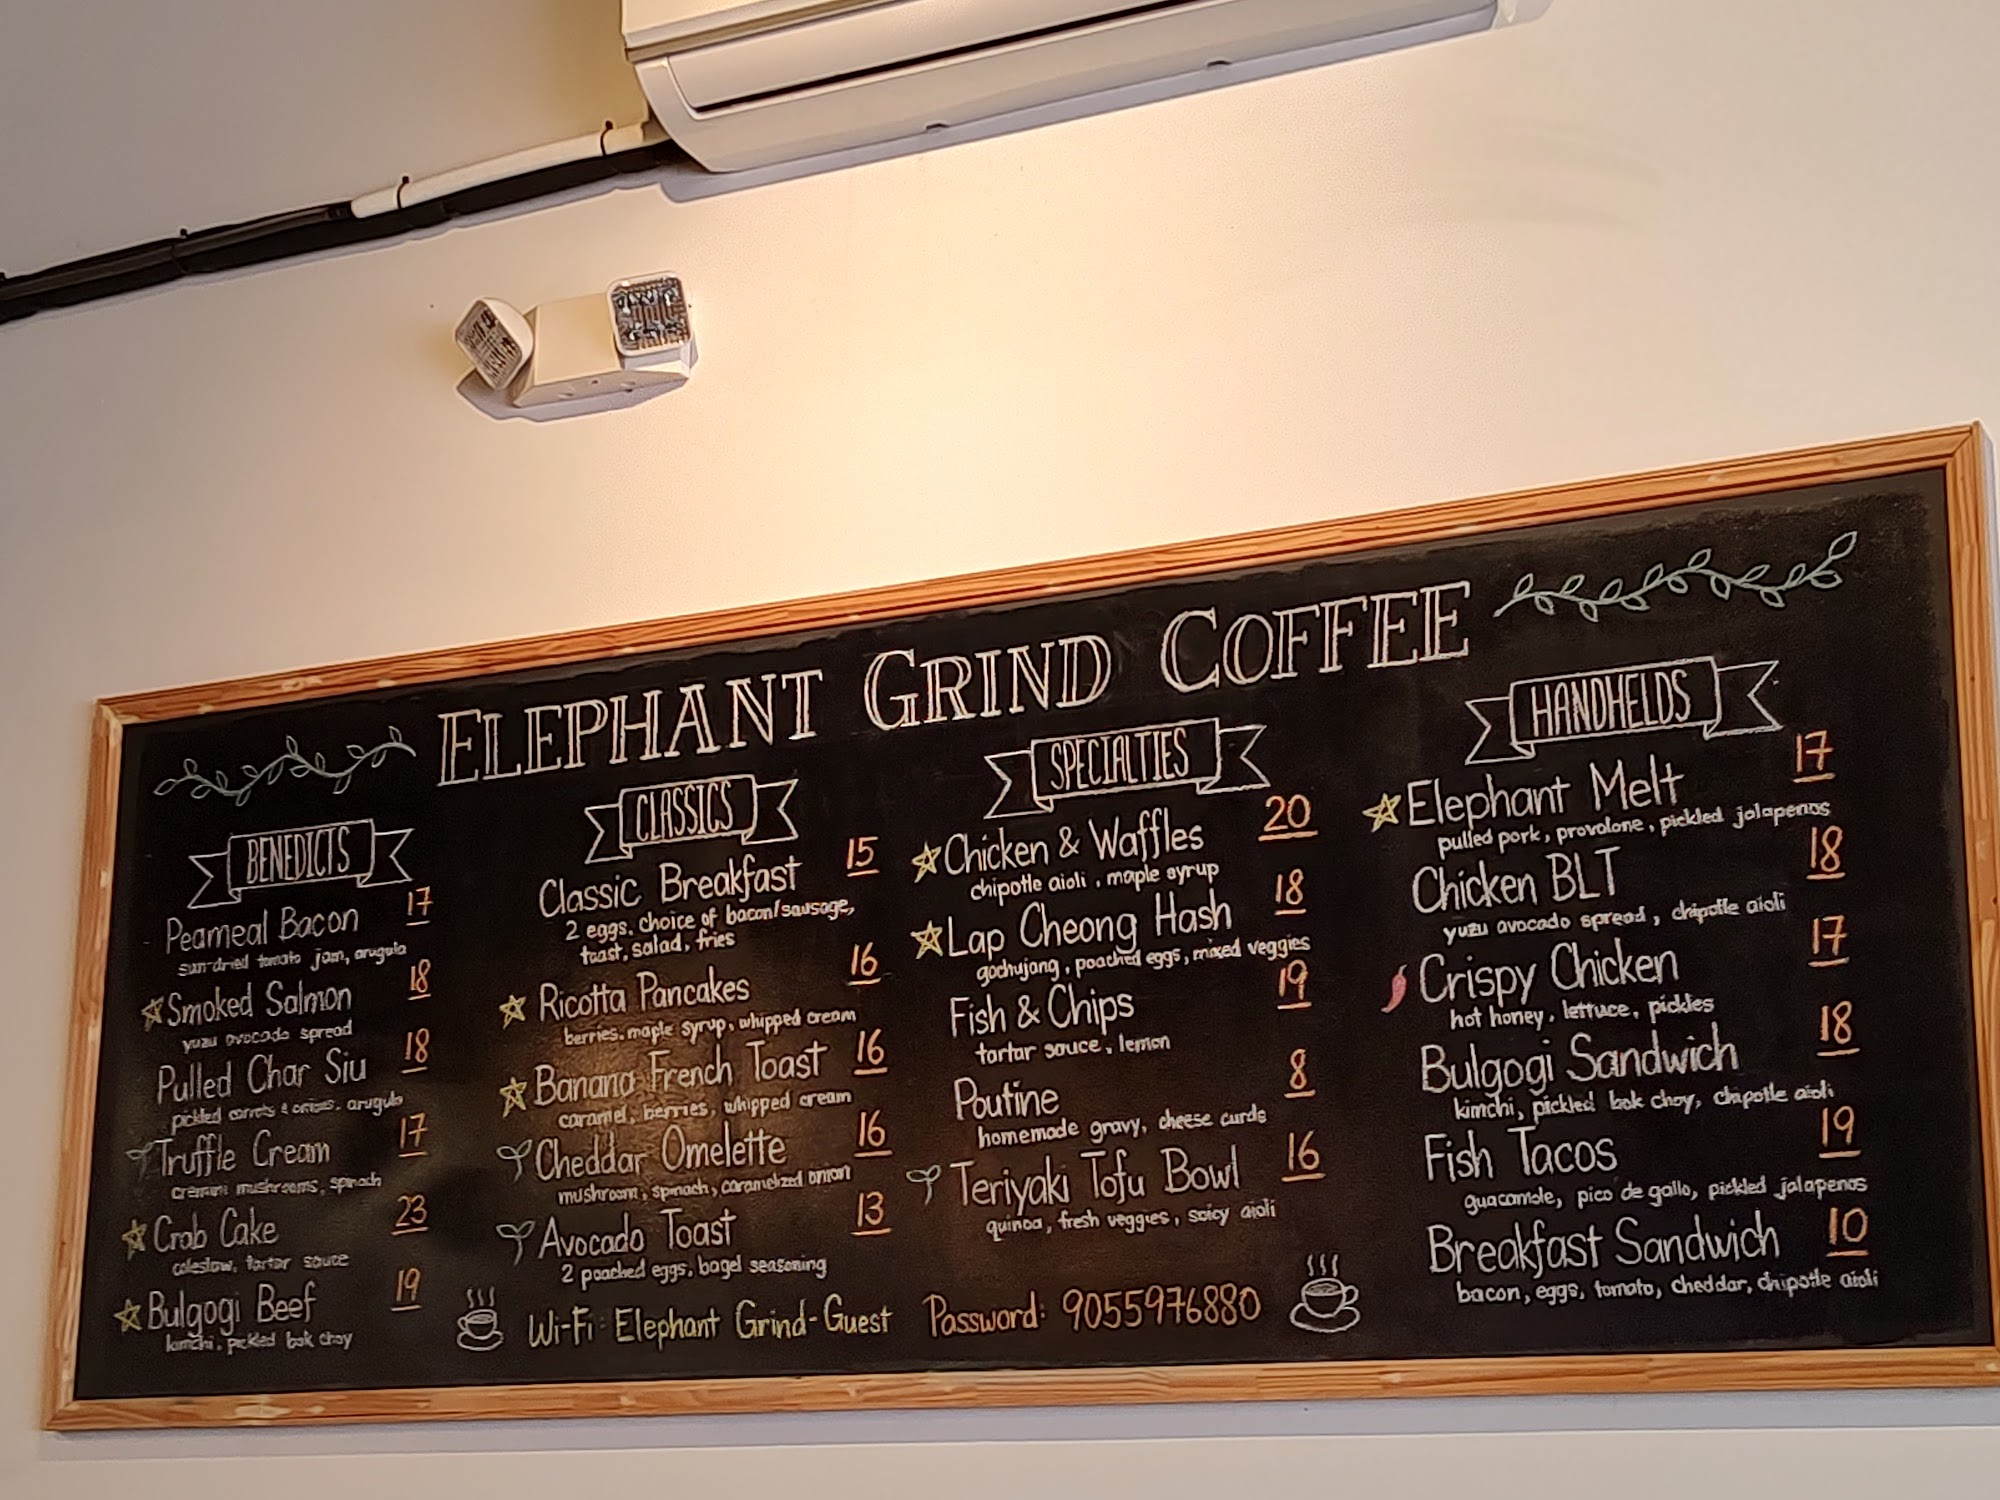 ELEPHANT GRIND COFFEE
BENEDICTS
Peameal Bacon 17
sun-dried tomato jam, arugula
Smoked Salmon 18
yuzu avocado spread
Pulled Char Siu 18
pickled carrots & onions, arugula
Truffle Cream 17
cremini mushrooms, spinach
Crab Cake 23
coleslaw, tartar sauce
Bulgogi Beef 19
kimchi, pickled bok choy
CLASSICS
Classic Breakfast 15
2 eggs, choice of bacon/sausage,
toast, salad, fries
Ricotta Pancakes 16
berries, maple syrup, whipped cream
Banana French Toast 16
caramel, berries, whipped cream
Cheddar Omelette 16
mushroom, spinach, caramelized onion
Avocado Toast 13
2 poached eggs, bagel seasoning
SPECIALTIES
Chicken & Waffles 20
chipotle aioli, maple syrup
Lap Cheong Hash 18
gochujang, poached eggs, mixed veggies
Fish & Chips 19
tartar sauce, lemon
Poutine 8
homemade gravy, cheese curds
Teriyaki Tofu Bowl 16
quinoa, fresh veggies, spicy aioli
HANDHELDS
Elephant Melt 17
pulled pork, provolone, pickled jalapenos
Chicken BLT 18
yuzu avocado spread, chipotle aioli
Crispy Chicken 17
hot honey, lettuce, pickles
Bulgogi Sandwich 18
kimchi, pickled bok choy, chipotle aioli
Fish Tacos 19
guacamole, pico de gallo, pickled jalapenos
Breakfast Sandwich 10
bacon, eggs, tomato, cheddar, chipotle aioli
Wi-Fi: Elephant Grind-Guest Password: 9055976880